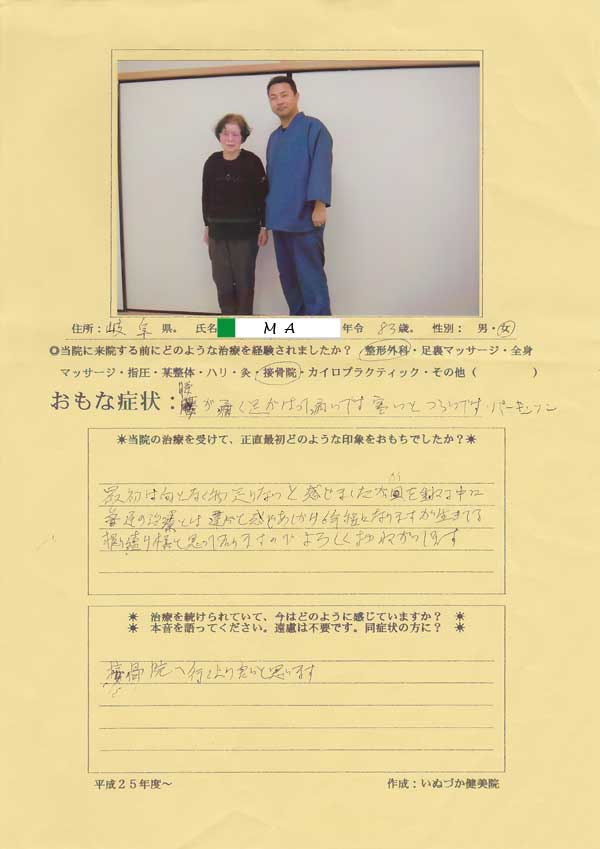 住所：岐阜県。 氏名 MA 年令 83歳。 性別： 男・女
◎当院に来院する前にどのような治療を経験されましたか？ 整形外科・足裏マッサージ・全身
マッサージ・指圧・某整体・ハリ・灸・接骨院・カイロプラクティック・その他（ ）
おもな症状：腰が痛く足がはって痛いです 寒いとつらいです パーキンソン
✷当院の治療を受けて、正直最初どのような印象をおもちでしたか？✷
最初は何となく物足りないと感じましたが回を
普通の治療とは違うと感じ
と思っておりますのでよろしくおねがいします
✷ 治療を続けられていて、今はどのように感じていますか？ ✷
✷ 本音を語ってください。遠慮は不要です。同症状の方に？ ✷
接骨院へ行くより良いと思います
平成２５年度～ 作成：いぬづか健美院